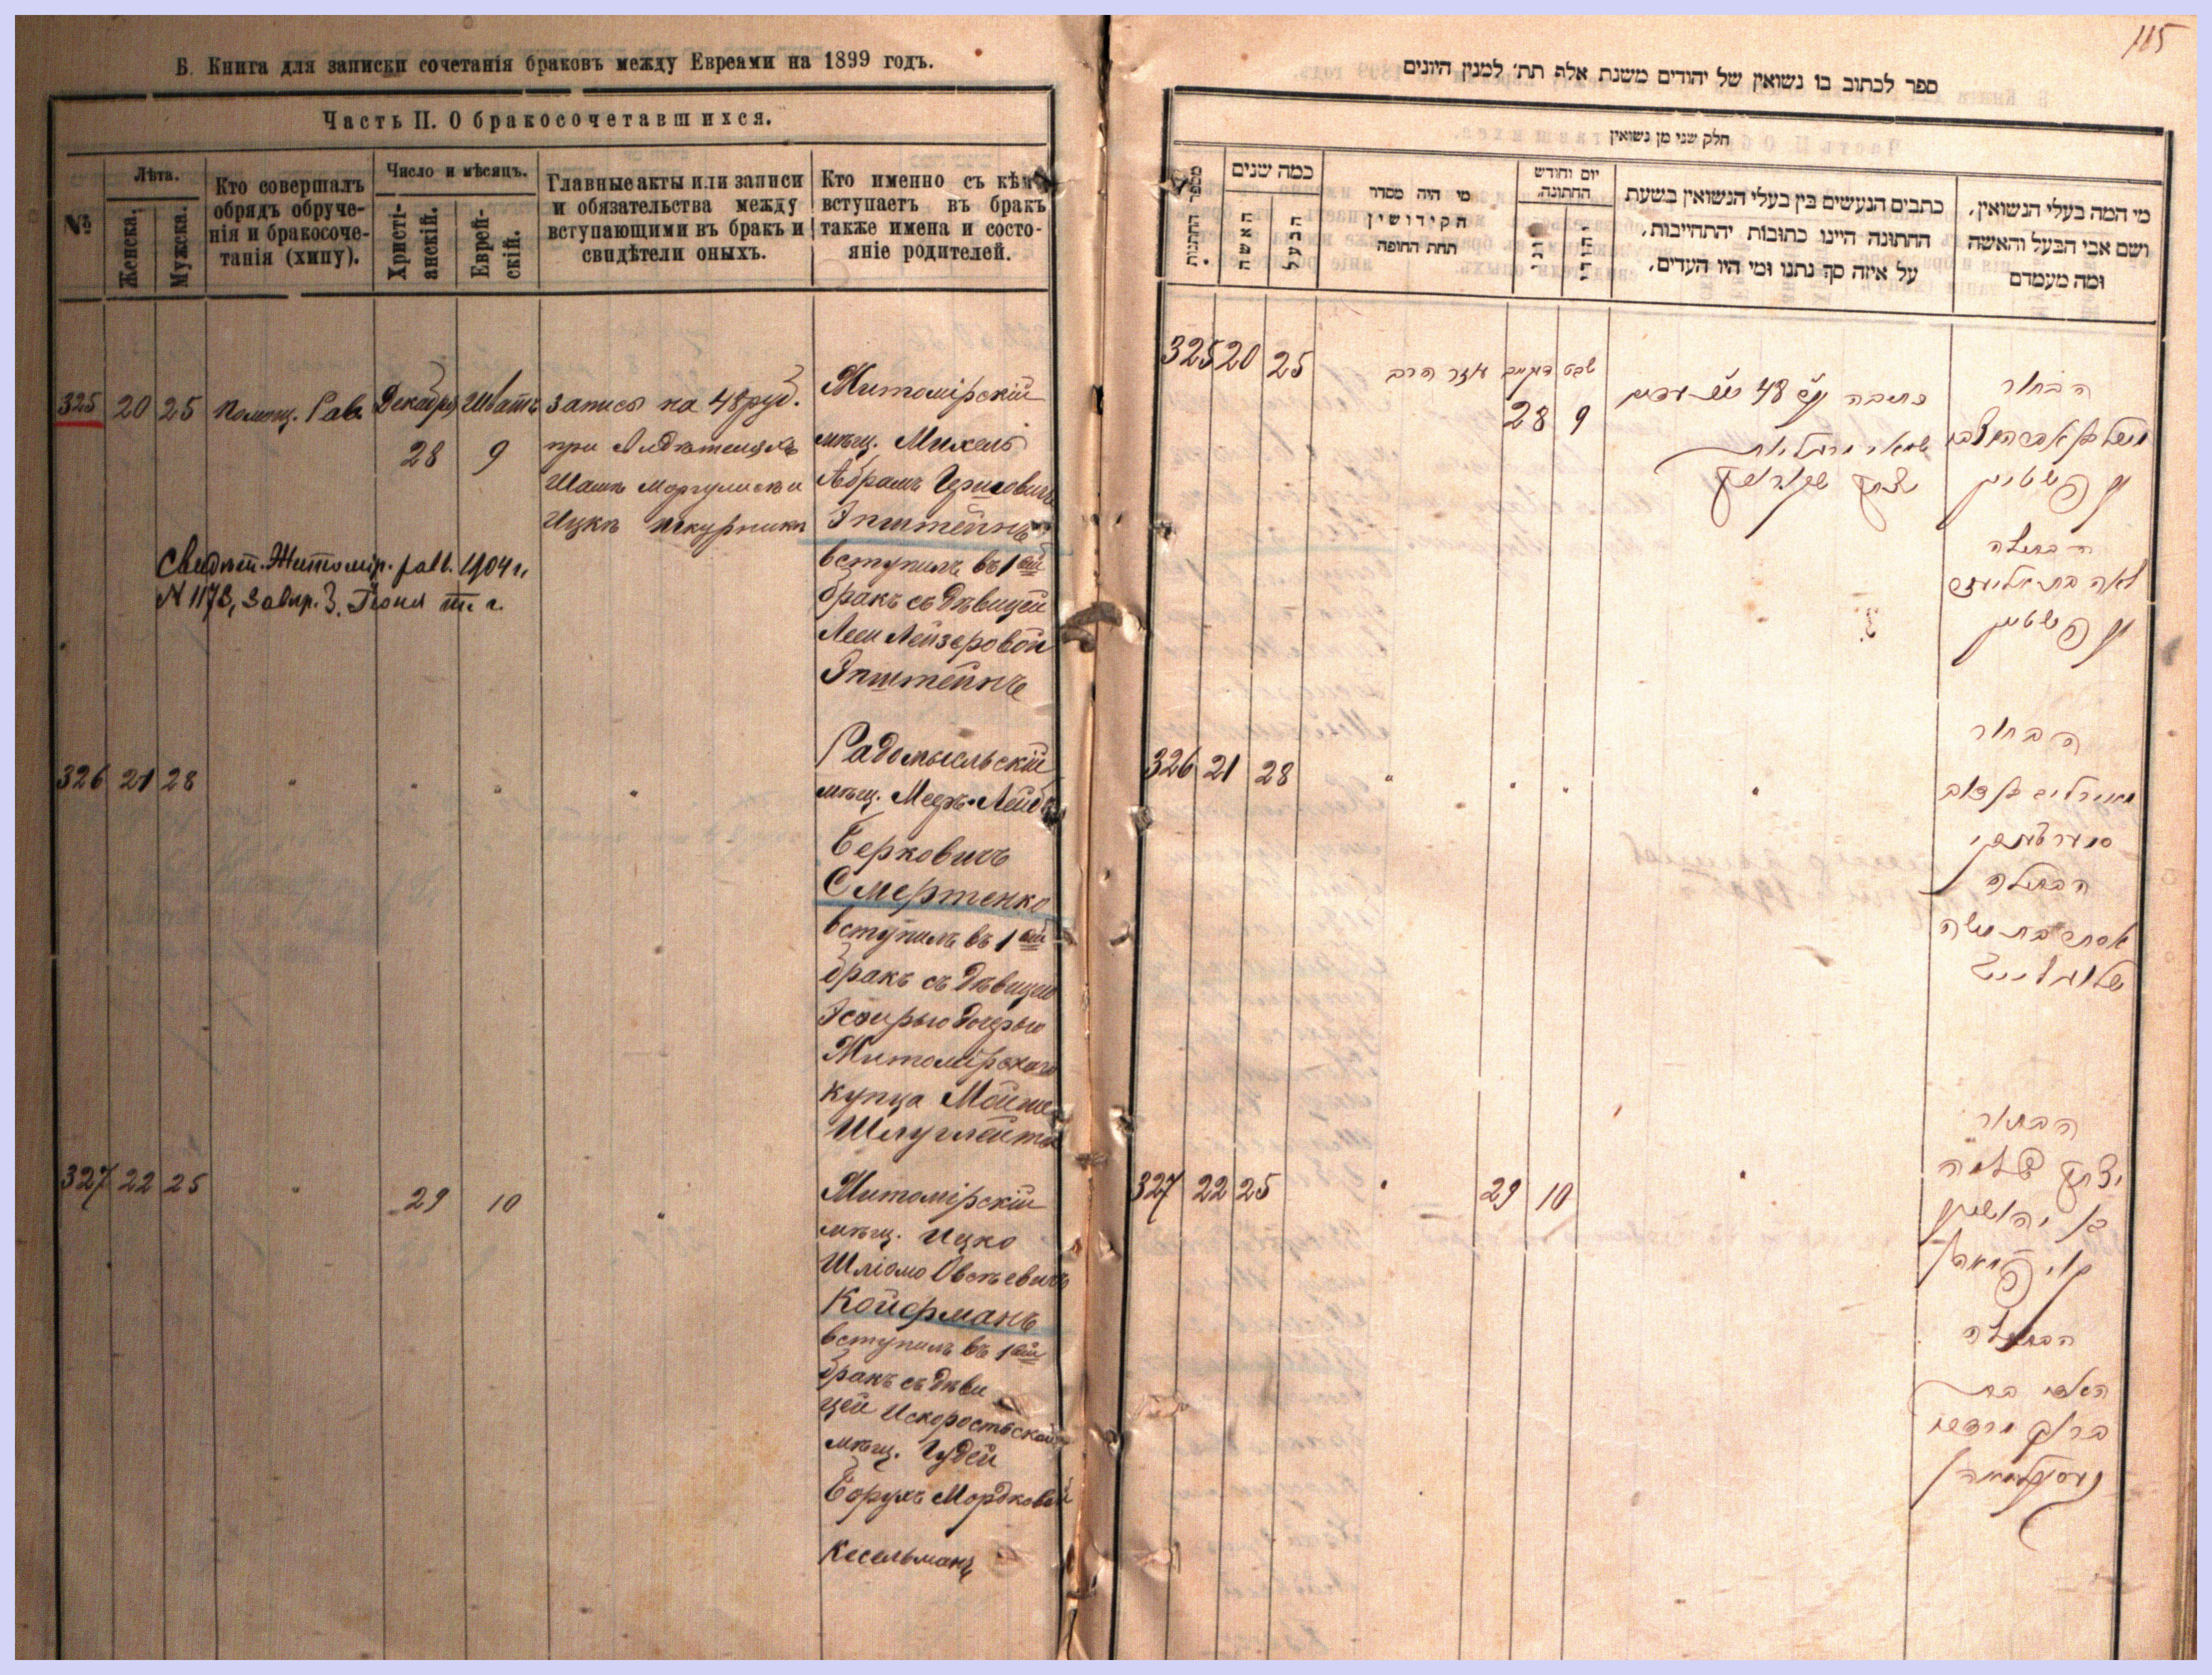 Б. Книга для записки сочетанія браковъ между Евреями на 1899 годъ.
Часть II. О бракосочетавшихся.
№
Лѣта.
Женска.
Мужска.
Кто совершалъ
обрядъ обруче-
нія и бракосоче-
танія (хипу).
Число и мѣсяцъ.
Христі-
анскій.
Еврей-
скій.
Главные акты или записи
и обязательства между
вступающими въ бракъ и
свидѣтели оныхъ.
Кто именно съ кѣмъ
вступаетъ въ бракъ
также имена и состо-
яніе родителей.
325 20 25 Помощ. Рав. Декабря 28 Шватъ 9
Запись на 48 руб.
при свидѣтеляхъ
Шаш Моргулисъ и
Ицкъ Шкурникъ
Житомірскій
мѣщ. Михель
Абрамъ Гершовичъ
Эпштейнъ
вступилъ въ 1ый
бракъ съ дѣвицей
Леей Лейзеровой
Эпштейнъ
Свидѣт. Житомір. равв. 1904 г.
N 1173, завѣр. 3. Іюня т. г.
326 21 28 " " " "
Радомысльскій
мѣщ. Мееръ-Лейбъ
Берковичъ
Смертенко
вступилъ въ 1ый
бракъ съ дѣвицею
Эсфирью дочерью
Житомірскаго
купца Мойше
Шлуглейта
327 22 25 " 29 10 "
Житомірскій
мѣщ. Ицко
Шліомо Овсѣевичъ
Койфманъ
вступилъ въ 1ый
бракъ съ дѣви
цей Искоростьской
мѣщ. Гудей
Борухъ Мордковой
Кесельманъ
115
ספר לכתוב בו נשואין של יהודים משנת אלף תת׳ למנין היונים
חלק שני מן נשואין
מספר החתונות
כמה שנים
האשה
הבעל
מי היה מסדר
הקידושין
תחת החופה
יום וחודש
החתונה
נוצרי
יהודי
כתבים הנעשים בין בעלי הנשואין בשעת
החתונה היינו כתובות יהתחייבות,
על איזה סך נתנו ומי היו העדים,
מי המה בעלי הנשואין,
ושם אבי הבעל והאשה
ומה מעמדם
325 20 25 עוזר הרב 28 שבט 9
כתובה 48
הבחור
עפשטיין
הבתולה
לאה בת אליעזר
עפשטיין
326 21 28 " " " "
הבחור
הבתולה
אסתר בת משה
327 22 25 " 29 10 "
הבחור
יצחק שלמה
קויפמאן
הבתולה
קעסעלמאן